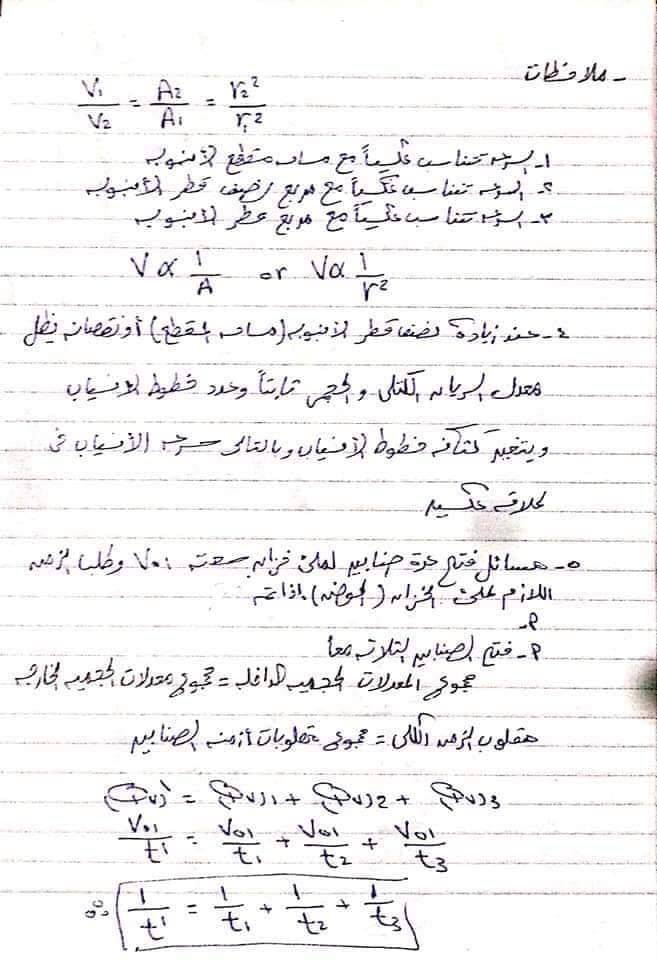 - ملاحظات
V1/V2 = A2/A1 = r2²/r1²
١- السرعه تتناسب عكسياً مع مساحه مقطع الأنبوبه
٢- السرعه تتناسب عكسياً مع مربع نصف قطر الأنبوبه
٣- السرعه تتناسب عكسياً مع مربع قطر الأنبوبه
V ∝ 1/A or V ∝ 1/r²
٤- عند زيادة نصف قطر الأنبوبه (مساحه المقطع) أو نقصانه يظل
معدل السريان الكتلى والحجمى ثابتاً وعدد خطوط الانسياب
ويتغير كثافه خطوط الأنسياب وبالتالى سرعه الأنسياب فى
علاقه عكسيه
٥- مسائل فتح عدة صنابير لملئ خزان سعته Vol وطلب الزمن
اللازم لملئ الخزان (الحوض) اذا تم
٩-
٩- فتح الصنابير الثلاثه معاً
مجموع المعدلات الحجميه الداخله = مجموع معدلات الحجميه الخارجه
مقلوب الزمن الكلى = مجموع مقلوبات أزمنه الصنابير
(Qv)' = (Qv)1 + (Qv)2 + (Qv)3
Vol/t' = Vol/t1 + Vol/t2 + Vol/t3
∴ 1/t' = 1/t1 + 1/t2 + 1/t3